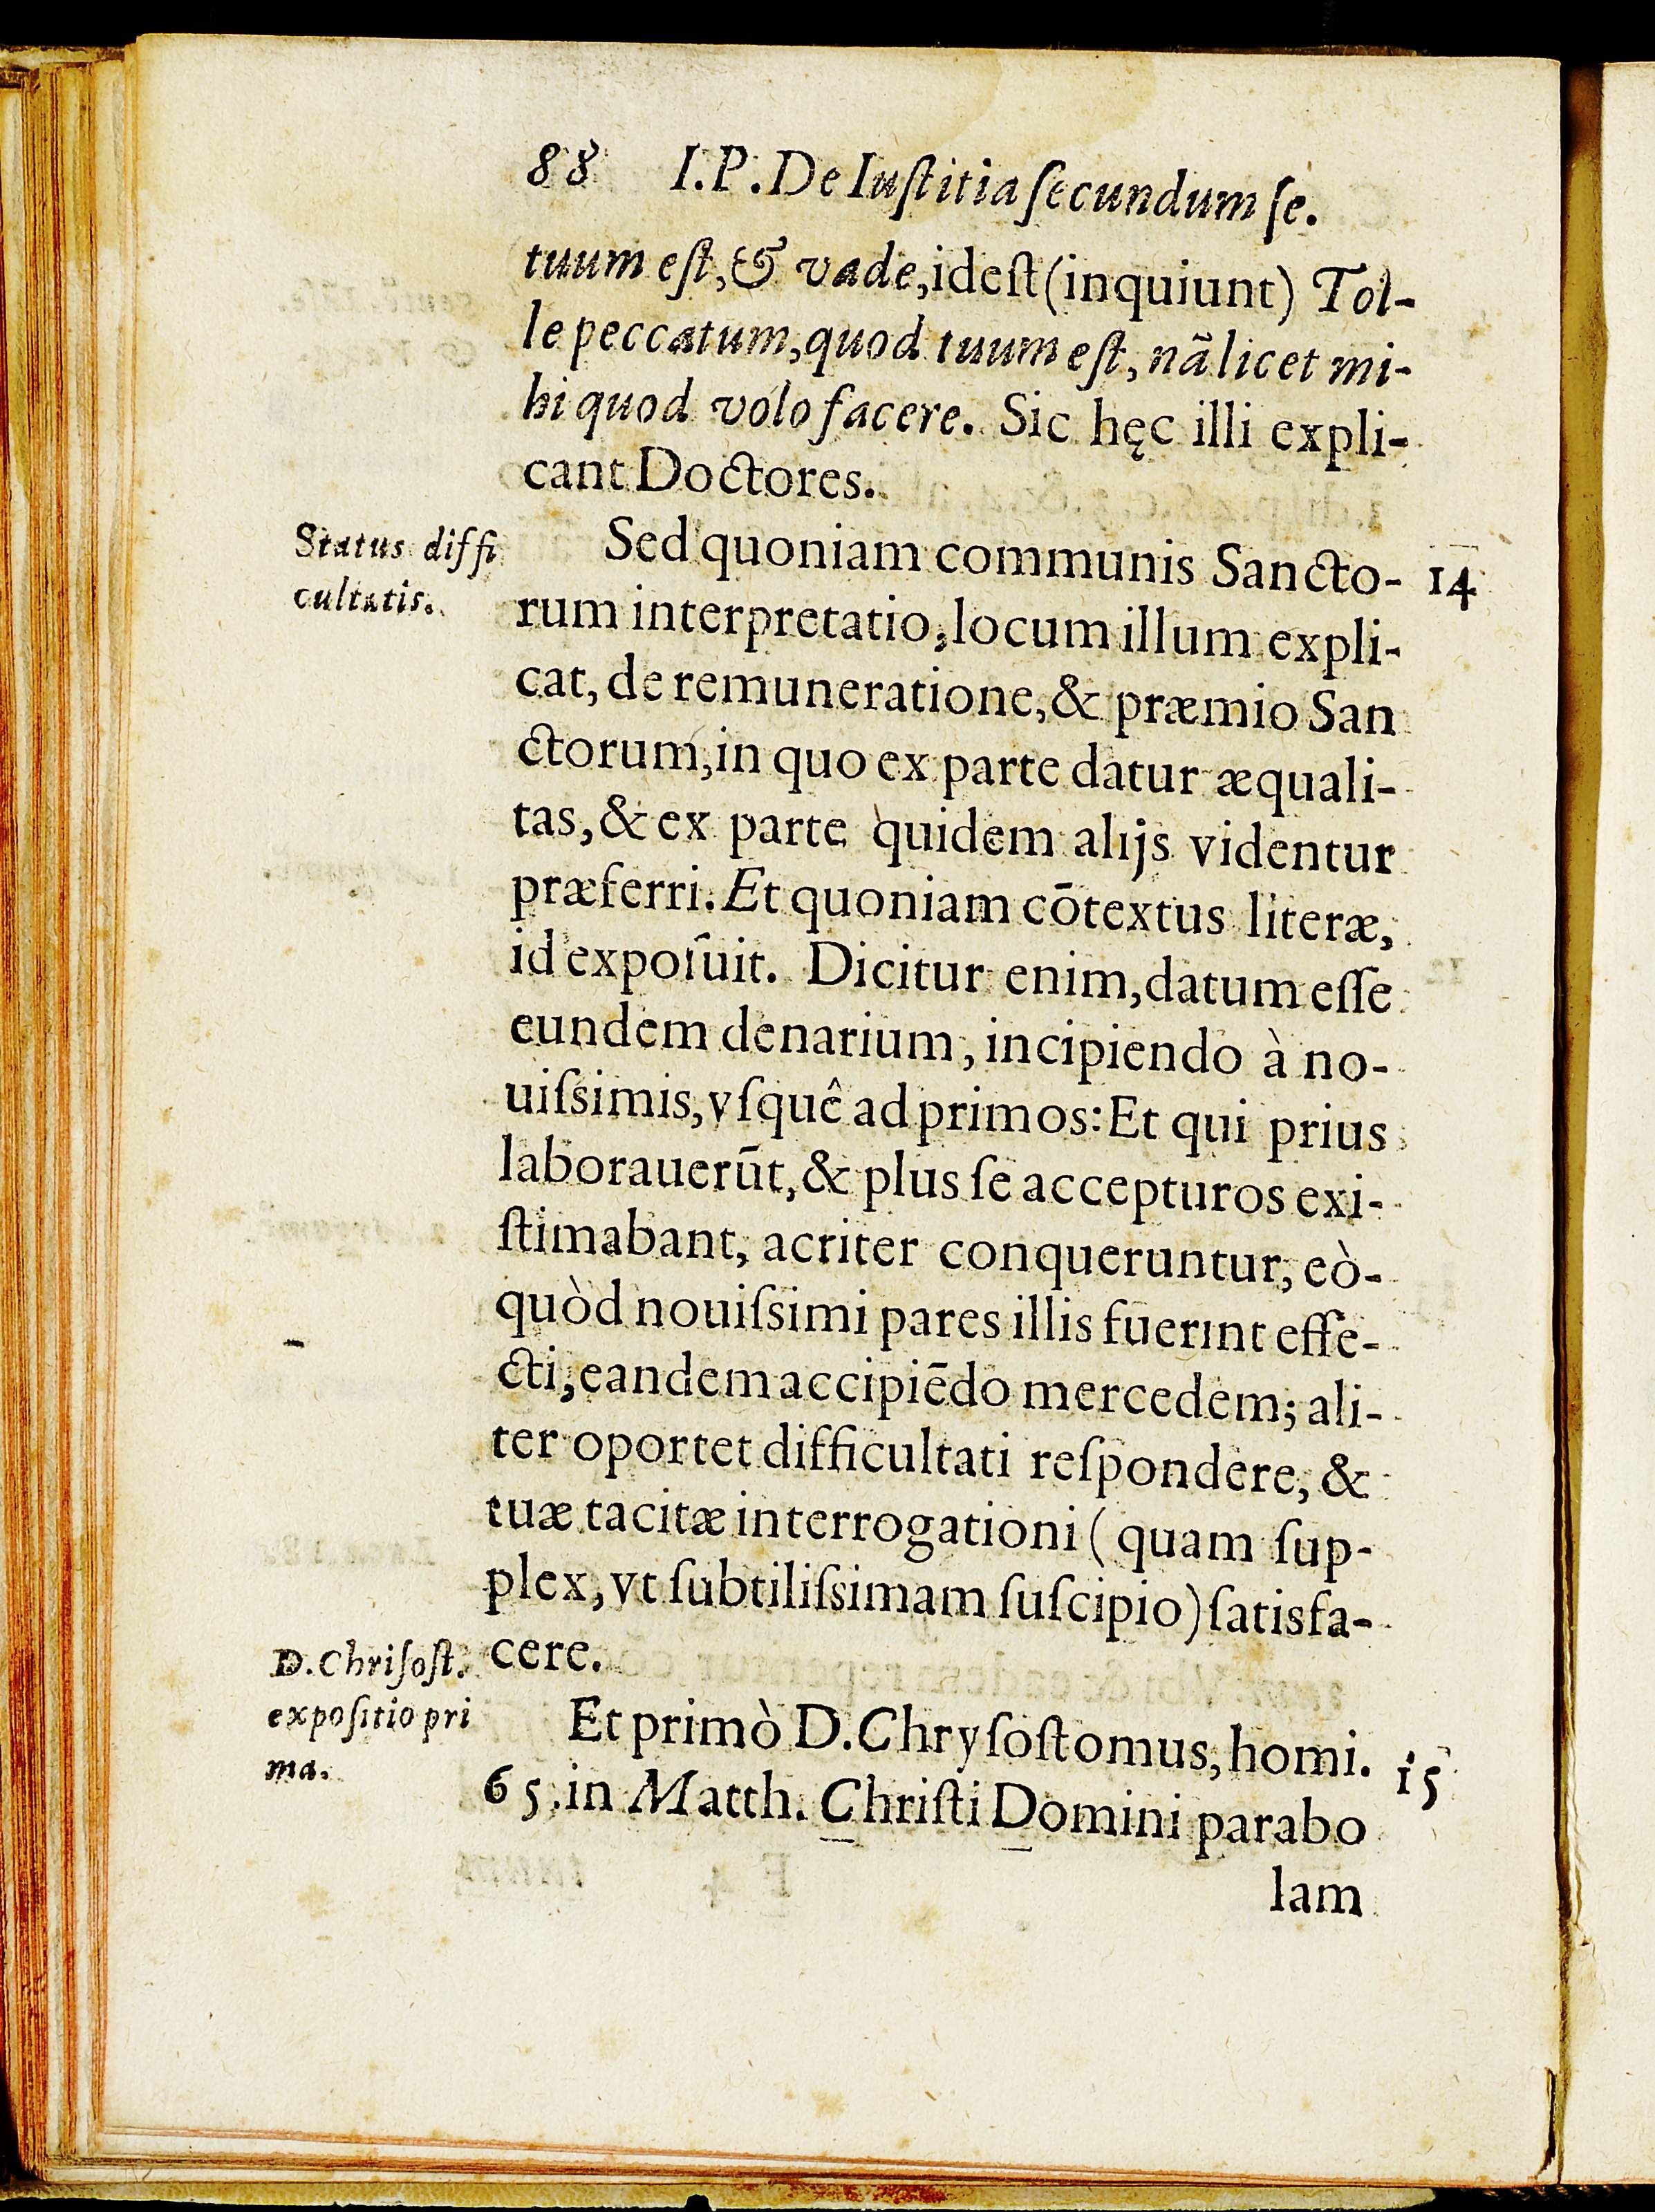 88 I.P. De Iuſtitia ſecundum ſe.
tuum eſt, & vade, ideſt (inquiunt) Tol-
le peccatum, quod tuum eſt, nã licet mi-
hi quod volo facere. Sic hęc illi expli-
cant Doctores.
Status diffi
cultatis.
Sed quoniam communis Sancto- 14
rum interpretatio, locum illum expli-
cat, de remuneratione, & præmio San
ctorum, in quo ex parte datur æquali-
tas, & ex parte quidem alijs videntur
præferri. Et quoniam cōtextus literæ,
id expoſuit. Dicitur enim, datum eſſe
eundem denarium, incipiendo à no-
uiſsimis, vſquê ad primos: Et qui prius
laborauerūt, & plus ſe accepturos exi-
ſtimabant, acriter conqueruntur, eò-
quòd nouiſsimi pares illis fuerint effe-
cti, eandem accipiēdo mercedem; ali-
ter oportet difficultati reſpondere, &
tuæ tacitæ interrogationi (quam ſup-
plex, vt ſubtiliſsimam ſuſcipio) ſatisfa-
cere.
D. Chriſoſt.
expoſitio pri
ma.
Et primò D. Chryſoſtomus, homi. 15
65. in Matth. Chriſti Domini parabo
lam